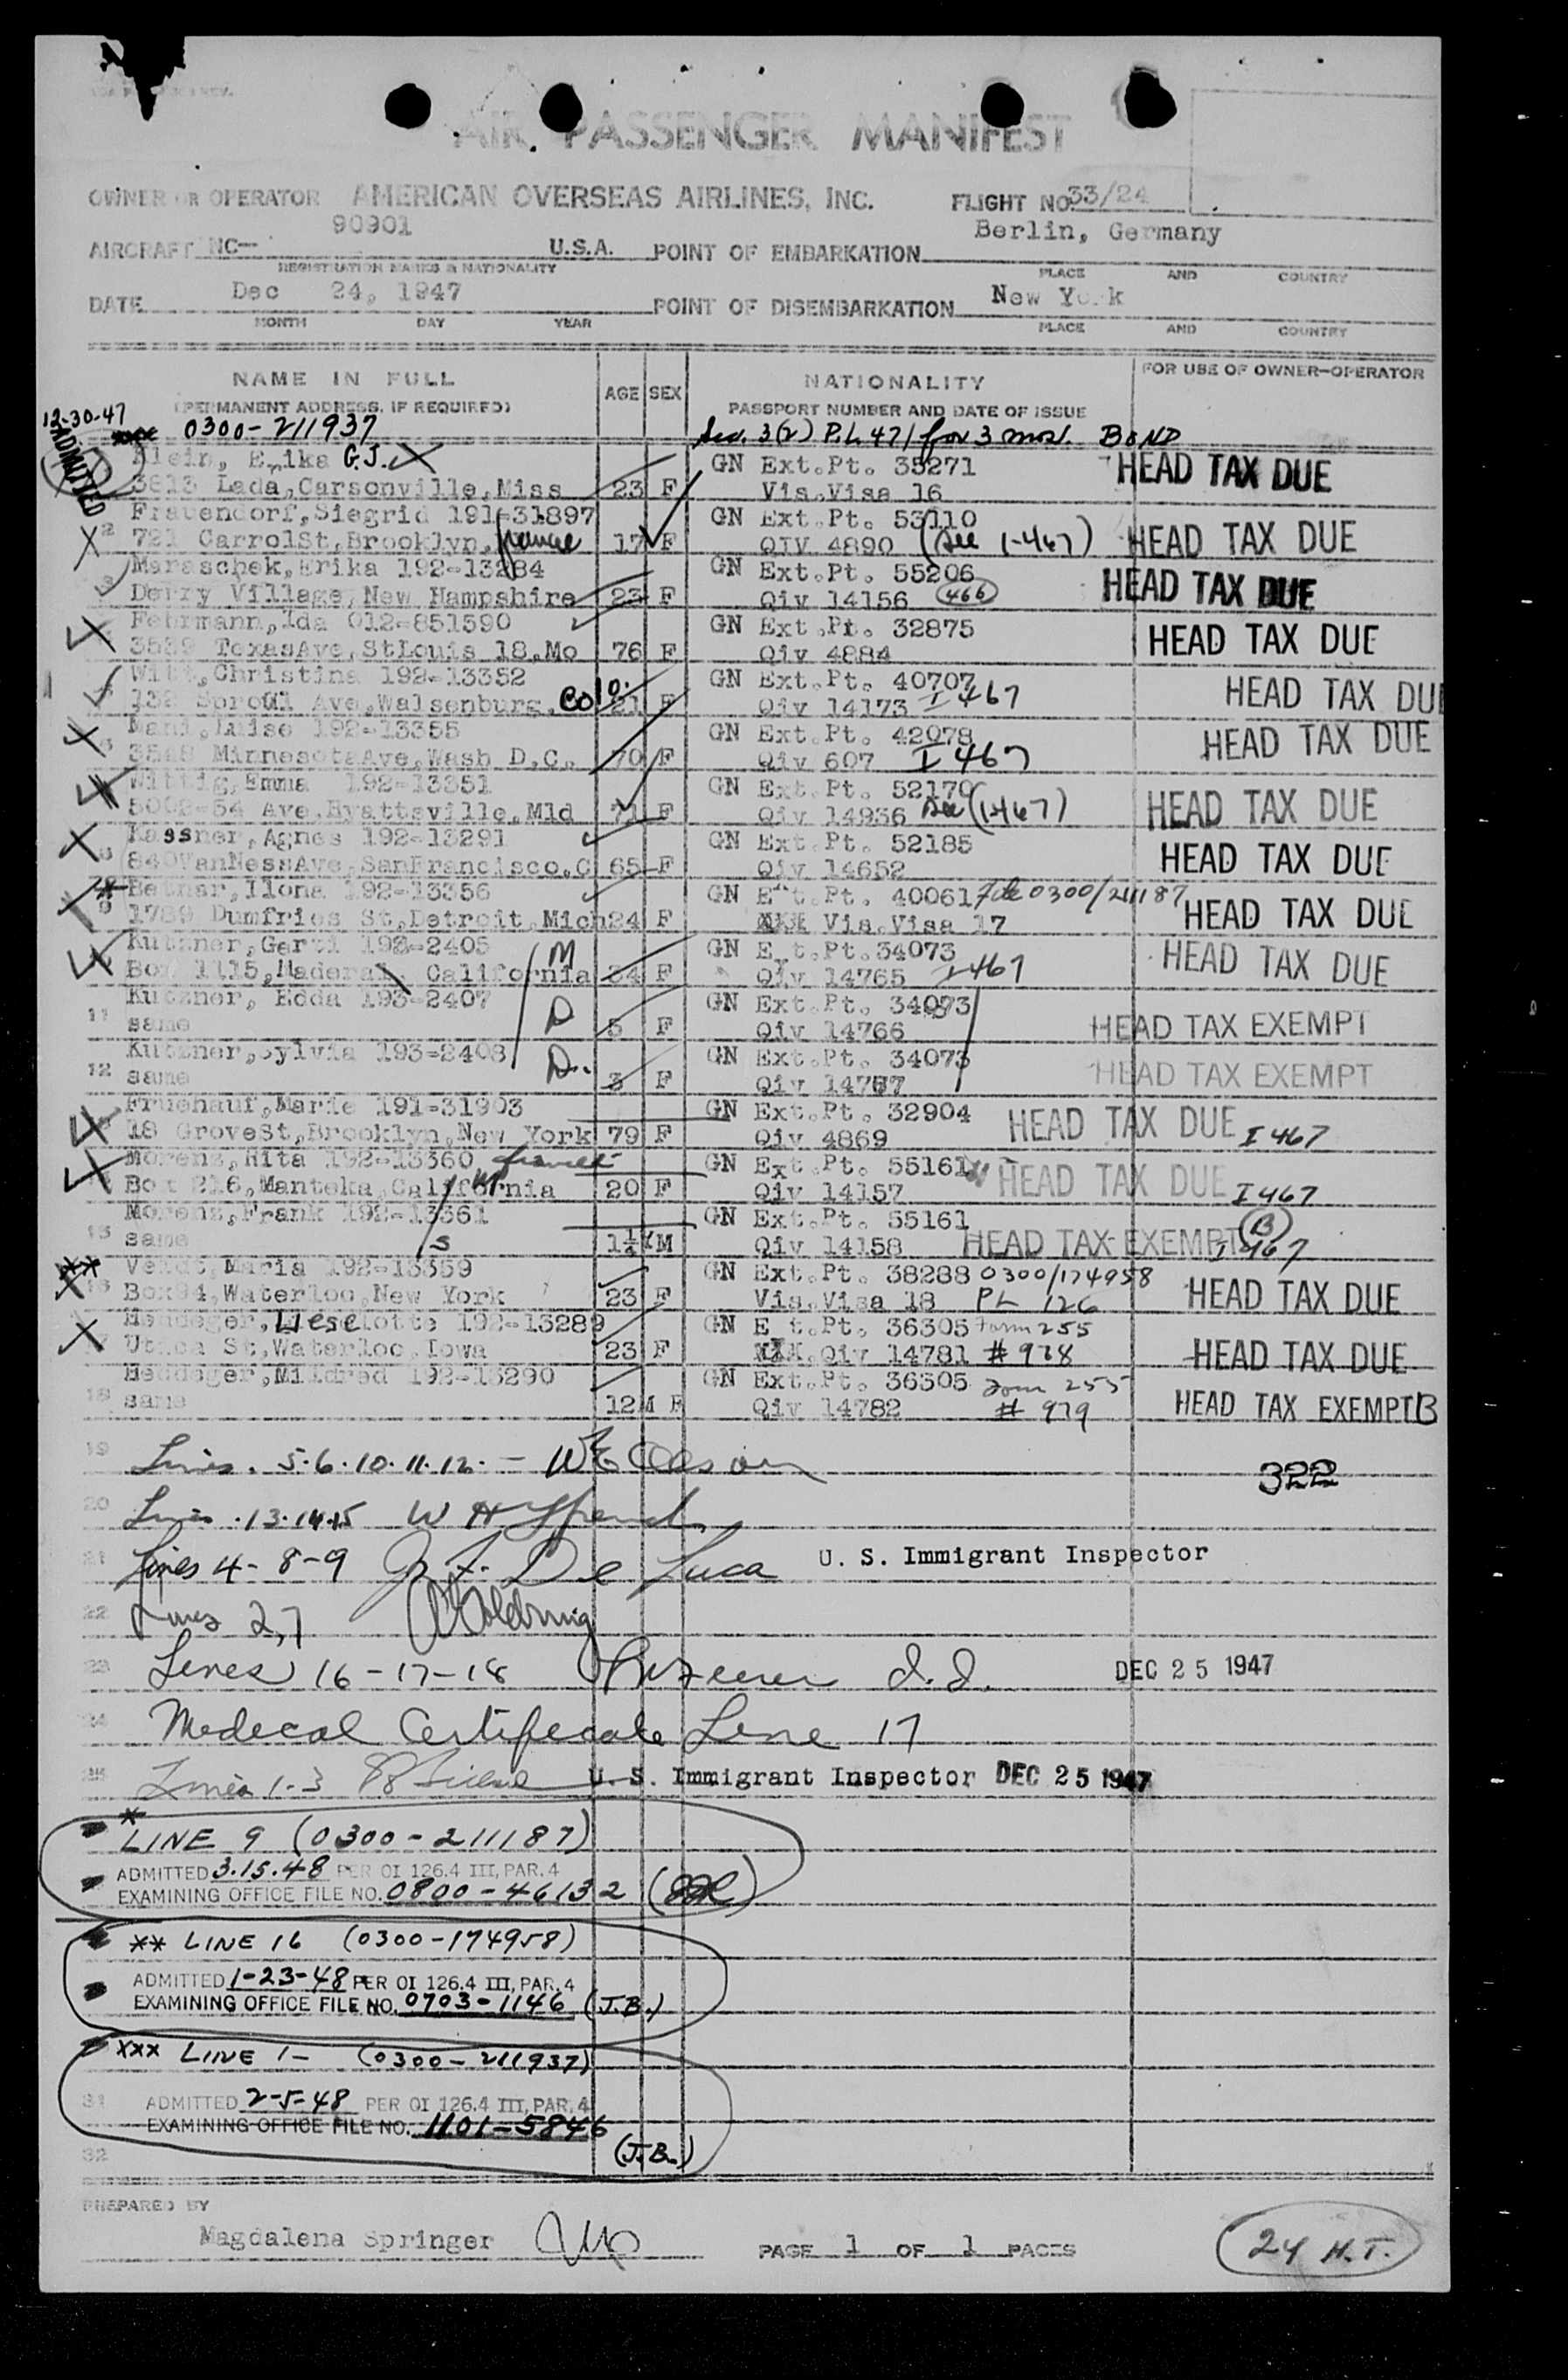 AIR PASSENGER MANIFEST
OWNER OR OPERATOR AMERICAN OVERSEAS AIRLINES, INC. FLIGHT NO 33/24
90901 Berlin, Germany
AIRCRAFT NC- U.S.A. POINT OF EMBARKATION
REGISTRATION MARKS & NATIONALITY PLACE AND COUNTRY
Dec 24, 1947 New York
DATE POINT OF DISEMBARKATION
MONTH DAY YEAR PLACE AND COUNTRY
NAME IN FULL AGE SEX NATIONALITY FOR USE OF OWNER-OPERATOR
(PERMANENT ADDRESS, IF REQUIRED) PASSPORT NUMBER AND DATE OF ISSUE
12-30-47 0300-211937 Sec. 3(2) P.L. 471 for 3 mos. BOND
ADMITTED
Klein, Erika G.J. GN Ext.Pt. 35271 HEAD TAX DUE
3813 Lada,Carsonville,Miss 23 F Vis.Visa 16
Frauendorf,Siegrid 191-31897 GN Ext.Pt. 53110 HEAD TAX DUE
2 721 CarrolSt,Brooklyn, 17 F QIV 4890 (See 1-467)
Maraschek,Erika 192-13284 GN Ext.Pt. 55206 HEAD TAX DUE
3 Derry Village,New Hampshire 23 F Qiv 14156 466
Fehrmann,Ida 012-851590 GN Ext.Pt. 32875 HEAD TAX DUE
3539 TexasAve,StLouis 18,Mo 76 F Qiv 4884
Witt,Christina 192-13352 GN Ext.Pt. 40707 HEAD TAX DUE
132 Sproul Ave,Walsenburg, Colo. 21 F Qiv 14173 I 467
Luise 192-13355 GN Ext.Pt. 42078 HEAD TAX DUE
MinnesotaAve,Wash D.C. 70 F Qiv 607 I 467
Wittig,Emma 192-13351 GN Ext.Pt. 52170 HEAD TAX DUE
5002-54 Ave,Hyattsville,Mld 71 F Qiv 14936 See (1-467)
Kassner,Agnes 192-13291 GN Ext.Pt. 52185 HEAD TAX DUE
8 840VanNessAve,SanFrancisco,C 65 F Qiv 14652
Ilona 192-13356 GN E t.Pt. 40061 File 0300/211187 HEAD TAX DUE
9 1789 Dumfries St,Detroit,Mich 24 F Vis.Visa 17
Kutzner,Gerti 192-2405 M GN E t.Pt.34073 HEAD TAX DUE
Box 1115,Madera, California 34 F Qiv 14765 I-467
Kutzner, Edda 193-2407 D GN Ext.Pt. 34073
11 same 5 F Qiv 14766 HEAD TAX EXEMPT
Kutzner,Sylvia 193-2408 D. GN Ext.Pt. 34073
12 same 3 F Qiv 14767 HEAD TAX EXEMPT
Fruehauf,Marie 191-31903 GN Ext.Pt. 32904 HEAD TAX DUE I 467
18 GroveSt,Brooklyn,New York 79 F Qiv 4869
Morenz,Rita 192-13360 GN Ext.Pt. 55161 HEAD TAX DUE I 467
Box 216,Manteka,California M 20 F Qiv 14157
Morenz,Frank 192-13361 GN Ext.Pt. 55161 B
15 same s 1¼ Y M Qiv 14158 HEAD TAX EXEMPT I 467
** Maria 192-13359 GN Ext.Pt. 38288 0300/174958 HEAD TAX DUE
16 Box94,Waterloo,New York 23 F Vis.Visa 18 PL 126
Lieselotte 192-13289 GN E t.Pt. 36305 Form 255
St,Waterloo,Iowa 23 F Qiv 14781 # 978 HEAD TAX DUE
Mildred 192-13290 GN Ext.Pt. 36305 Form 255
18 same 12M F Qiv 14782 # 979 HEAD TAX EXEMPT B
19 Lines. 5.6.10.11.12. - 322
20 Lines .13.14.15
21 Lines 4-8-9 De Luca U. S. Immigrant Inspector
22 Lines 2,7
23 Lines 16-17-18 DEC 25 1947
24 Medical Certificate Line 17
Lines 1-3 U. S. Immigrant Inspector DEC 25 1947
*
LINE 9 (0300-211187)
ADMITTED 3.15.48 PER OI 126.4 III, PAR. 4
EXAMINING OFFICE FILE NO. 0800-46132
** LINE 16 (0300-174958)
ADMITTED 1-23-48 PER OI 126.4 III, PAR. 4
EXAMINING OFFICE FILE NO. 0703-1146 (J.B.)
*** LINE 1- (0300-211937)
31 ADMITTED 2-5-48 PER OI 126.4 III, PAR. 4
EXAMINING OFFICE FILE NO. 1101-5846
32 (J.B.)
PREPARED BY
Magdalena Springer PAGE 1 OF 1 PAGES 24 H.T.